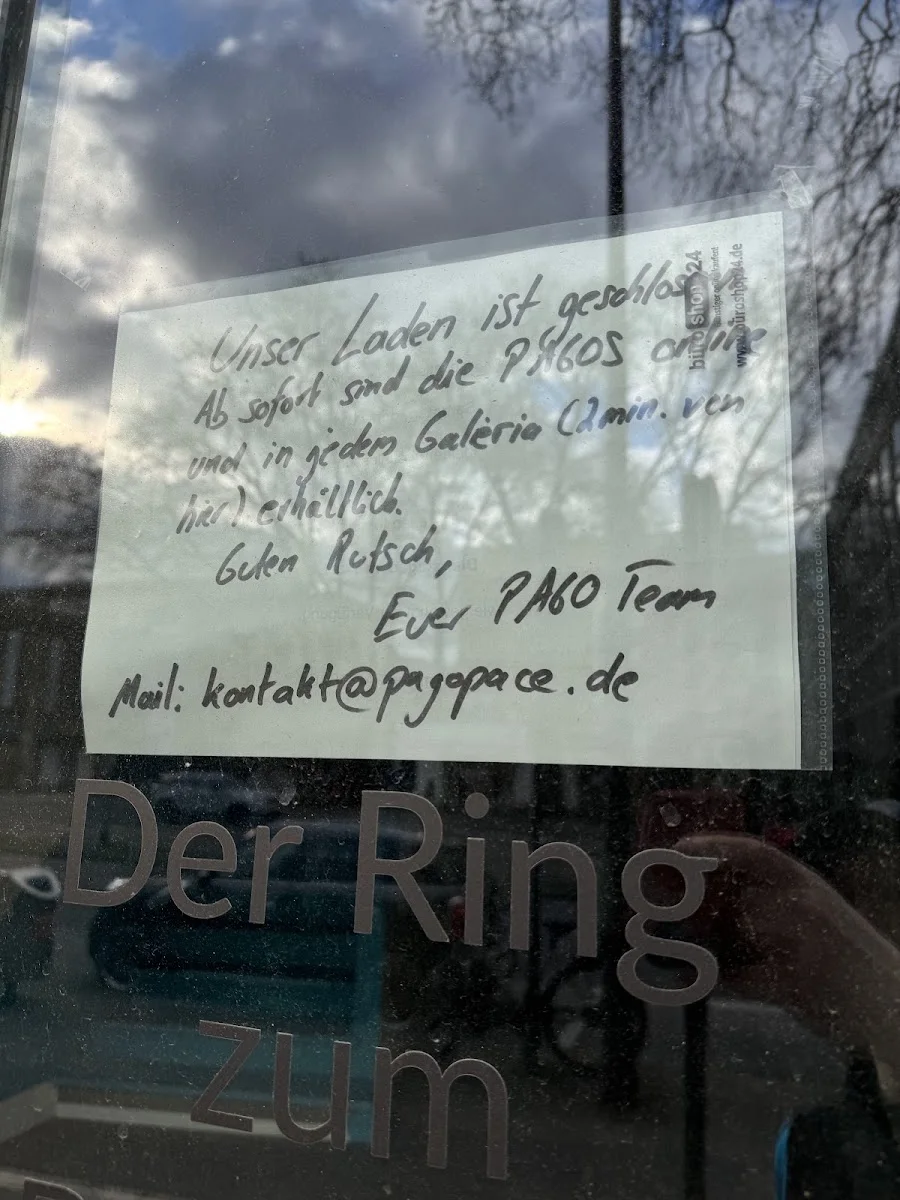 Unser Laden ist geschlossen
Ab sofort sind die PAGOS online
und in jedem Galeria (2min. von
hier) erhältlich.
Guten Rutsch,
Euer PAGO Team
Mail: kontakt@pagopace.de
büro shop 24
www.büroshop24.de
Der Ring
zum